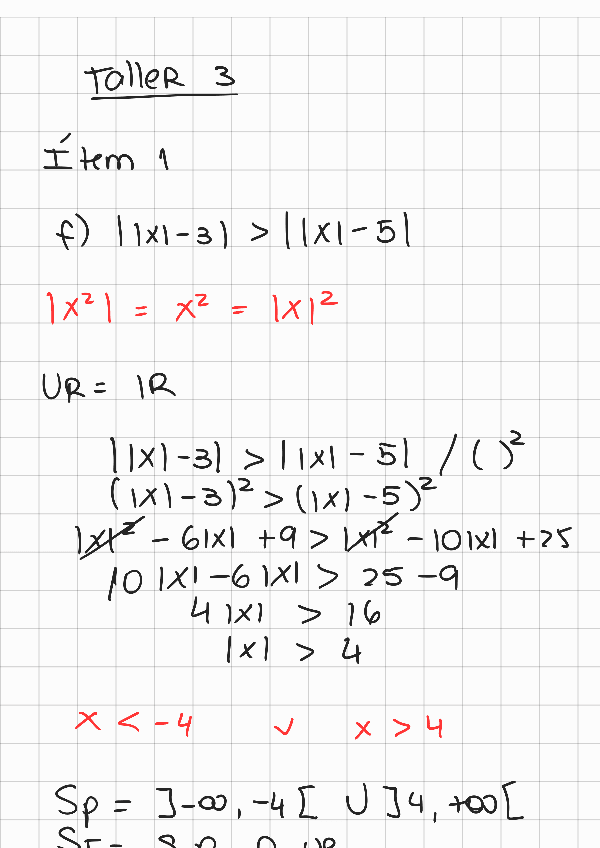 Taller 3
Ítem 1
f) ||x|-3| > ||x|-5|
|x²| = x² = |x|²
UR = IR
||x|-3| > ||x|-5| / ( )²
(|x|-3)² > (|x|-5)²
|x|² - 6|x| + 9 > |x|² - 10|x| + 25
10|x| - 6|x| > 25 - 9
4|x| > 16
|x| > 4
x < -4 ∨ x > 4
Sp = ]-∞, -4[ ∪ ]4, +∞[